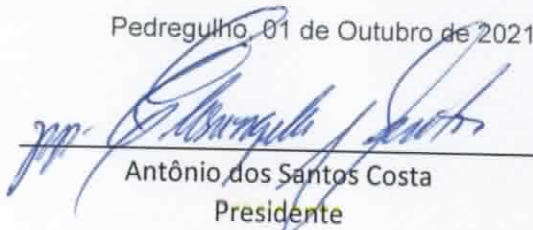 Pedregulho, 01 de Outubro de 2021
pp.
Antônio dos Santos Costa
Presidente